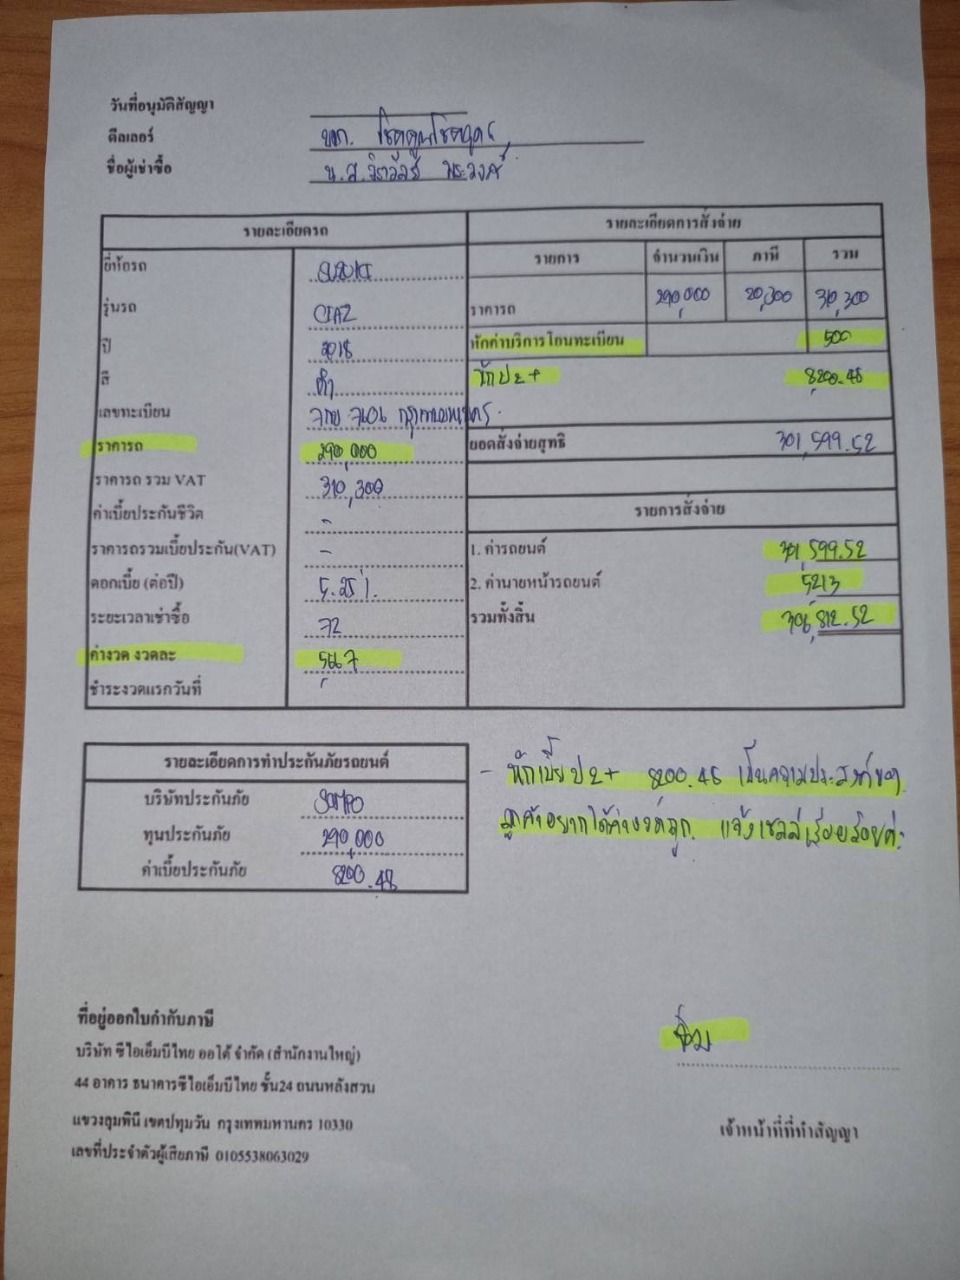 วันที่อนุมัติสัญญา
ดีลเลอร์ บจก.
ชื่อผู้เช่าซื้อ น.ส.
รายละเอียดรถ
ยี่ห้อรถ SUZUKI
รุ่นรถ CIAZ
ปี 2018
สี ดำ
เลขทะเบียน กรุงเทพมหานคร
ราคารถ 290,000
ราคารถ รวม VAT 310,300
ค่าเบี้ยประกันชีวิต -
ราคารถรวมเบี้ยประกัน(VAT) -
ดอกเบี้ย (ต่อปี) 5.25%
ระยะเวลาเช่าซื้อ 72
ค่างวด งวดละ 5,667
ชำระงวดแรกวันที่
รายละเอียดการสั่งจ่าย
รายการ จำนวนเงิน ภาษี รวม
ราคารถ 290,000 20,300 310,300
หักค่าบริการโอนทะเบียน 500
หัก ป2+ 8200.48
ยอดสั่งจ่ายสุทธิ 301,599.52
รายการสั่งจ่าย
1. ค่ารถยนต์ 301,599.52
2. ค่านายหน้ารถยนต์ 5213
รวมทั้งสิ้น 306,812.52
รายละเอียดการทำประกันภัยรถยนต์
บริษัทประกันภัย SOMPO
ทุนประกันภัย 290,000
ค่าเบี้ยประกันภัย 8200.48
- หักเบี้ย ป2+ 8200.48 เป็นความประสงค์ของ
ลูกค้าอยากได้ค่างวดถูก แจ้งเซลล์เรียบร้อยค่ะ
ที่อยู่ออกใบกำกับภาษี
บริษัท ซีไอเอ็มบีไทย ออโต้ จำกัด (สำนักงานใหญ่)
44 อาคาร ธนาคารซีไอเอ็มบีไทย ชั้น24 ถนนหลังสวน
แขวงลุมพินี เขตปทุมวัน กรุงเทพมหานคร 10330
เลขที่ประจำตัวผู้เสียภาษี 0105538063029
เจ้าหน้าที่ที่ทำสัญญา